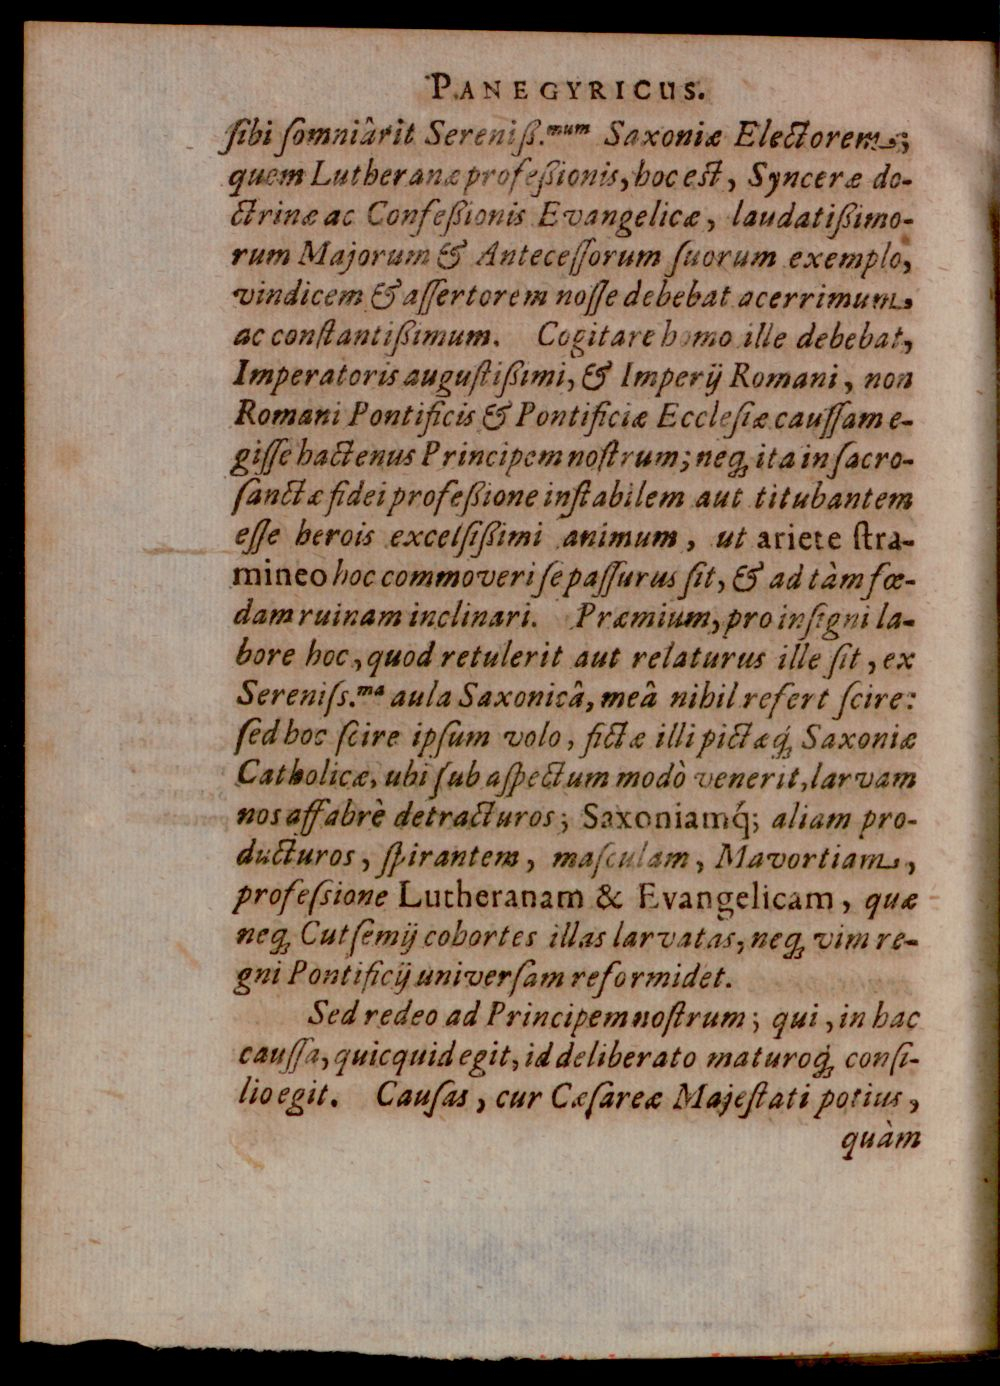 PANEGYRICUS.
ſibi ſomniârit Sereniß.mum Saxoniæ Electorem;
quem Lutheranæ profeßionis, hoc est, Synceræ do-
ctrinæ ac Confeßionis Evangelicæ, laudatißimo-
rum Majorum & Anteceſſorum ſuorum exemplo,
vindicem & aſſertorem noſſe debebat acerrimum,
ac conſtantißimum. Cogitare homo ille debebat,
Imperatoris auguſtißimi, & Imperij Romani, non
Romani Pontificis & Pontificiæ Eccleſiæ cauſſam e-
giſſe hactenus Principem noſtrum; neq; ita in ſacro-
ſanctæ fidei profeßione inſtabilem aut titubantem
eſſe herois excelſißimi animum, ut ariete ſtra-
mineo hoc commoveri ſe paſſurus ſit, & ad tàm fœ-
dam ruinam inclinari. Præmium, pro inſigni la-
bore hoc, quod retulerit aut relaturus ille ſit, ex
Sereniſs.ma aula Saxonicâ, meâ nihil refert ſcire:
ſed hoc ſcire ipſum volo, fictæ illi pictæq́; Saxoniæ
Catholicæ, ubi ſub aſpectum modò venerit, larvam
nos affabrè detracturos; Saxoniamq́; aliam pro-
ducturos, ſpirantem, maſculam, Mavortiam,
profeſsione Lutheranam & Evangelicam, quæ
neq; Cutſemij cohortes illas larvatas, neq; vim re-
gni Pontificij univerſam reformidet.
Sed redeo ad Principem noſtrum; qui, in hac
cauſſa, quicquid egit, id deliberato maturoq́; conſi-
lio egit. Cauſas, cur Cæſareæ Majeſtati potius,
quàm